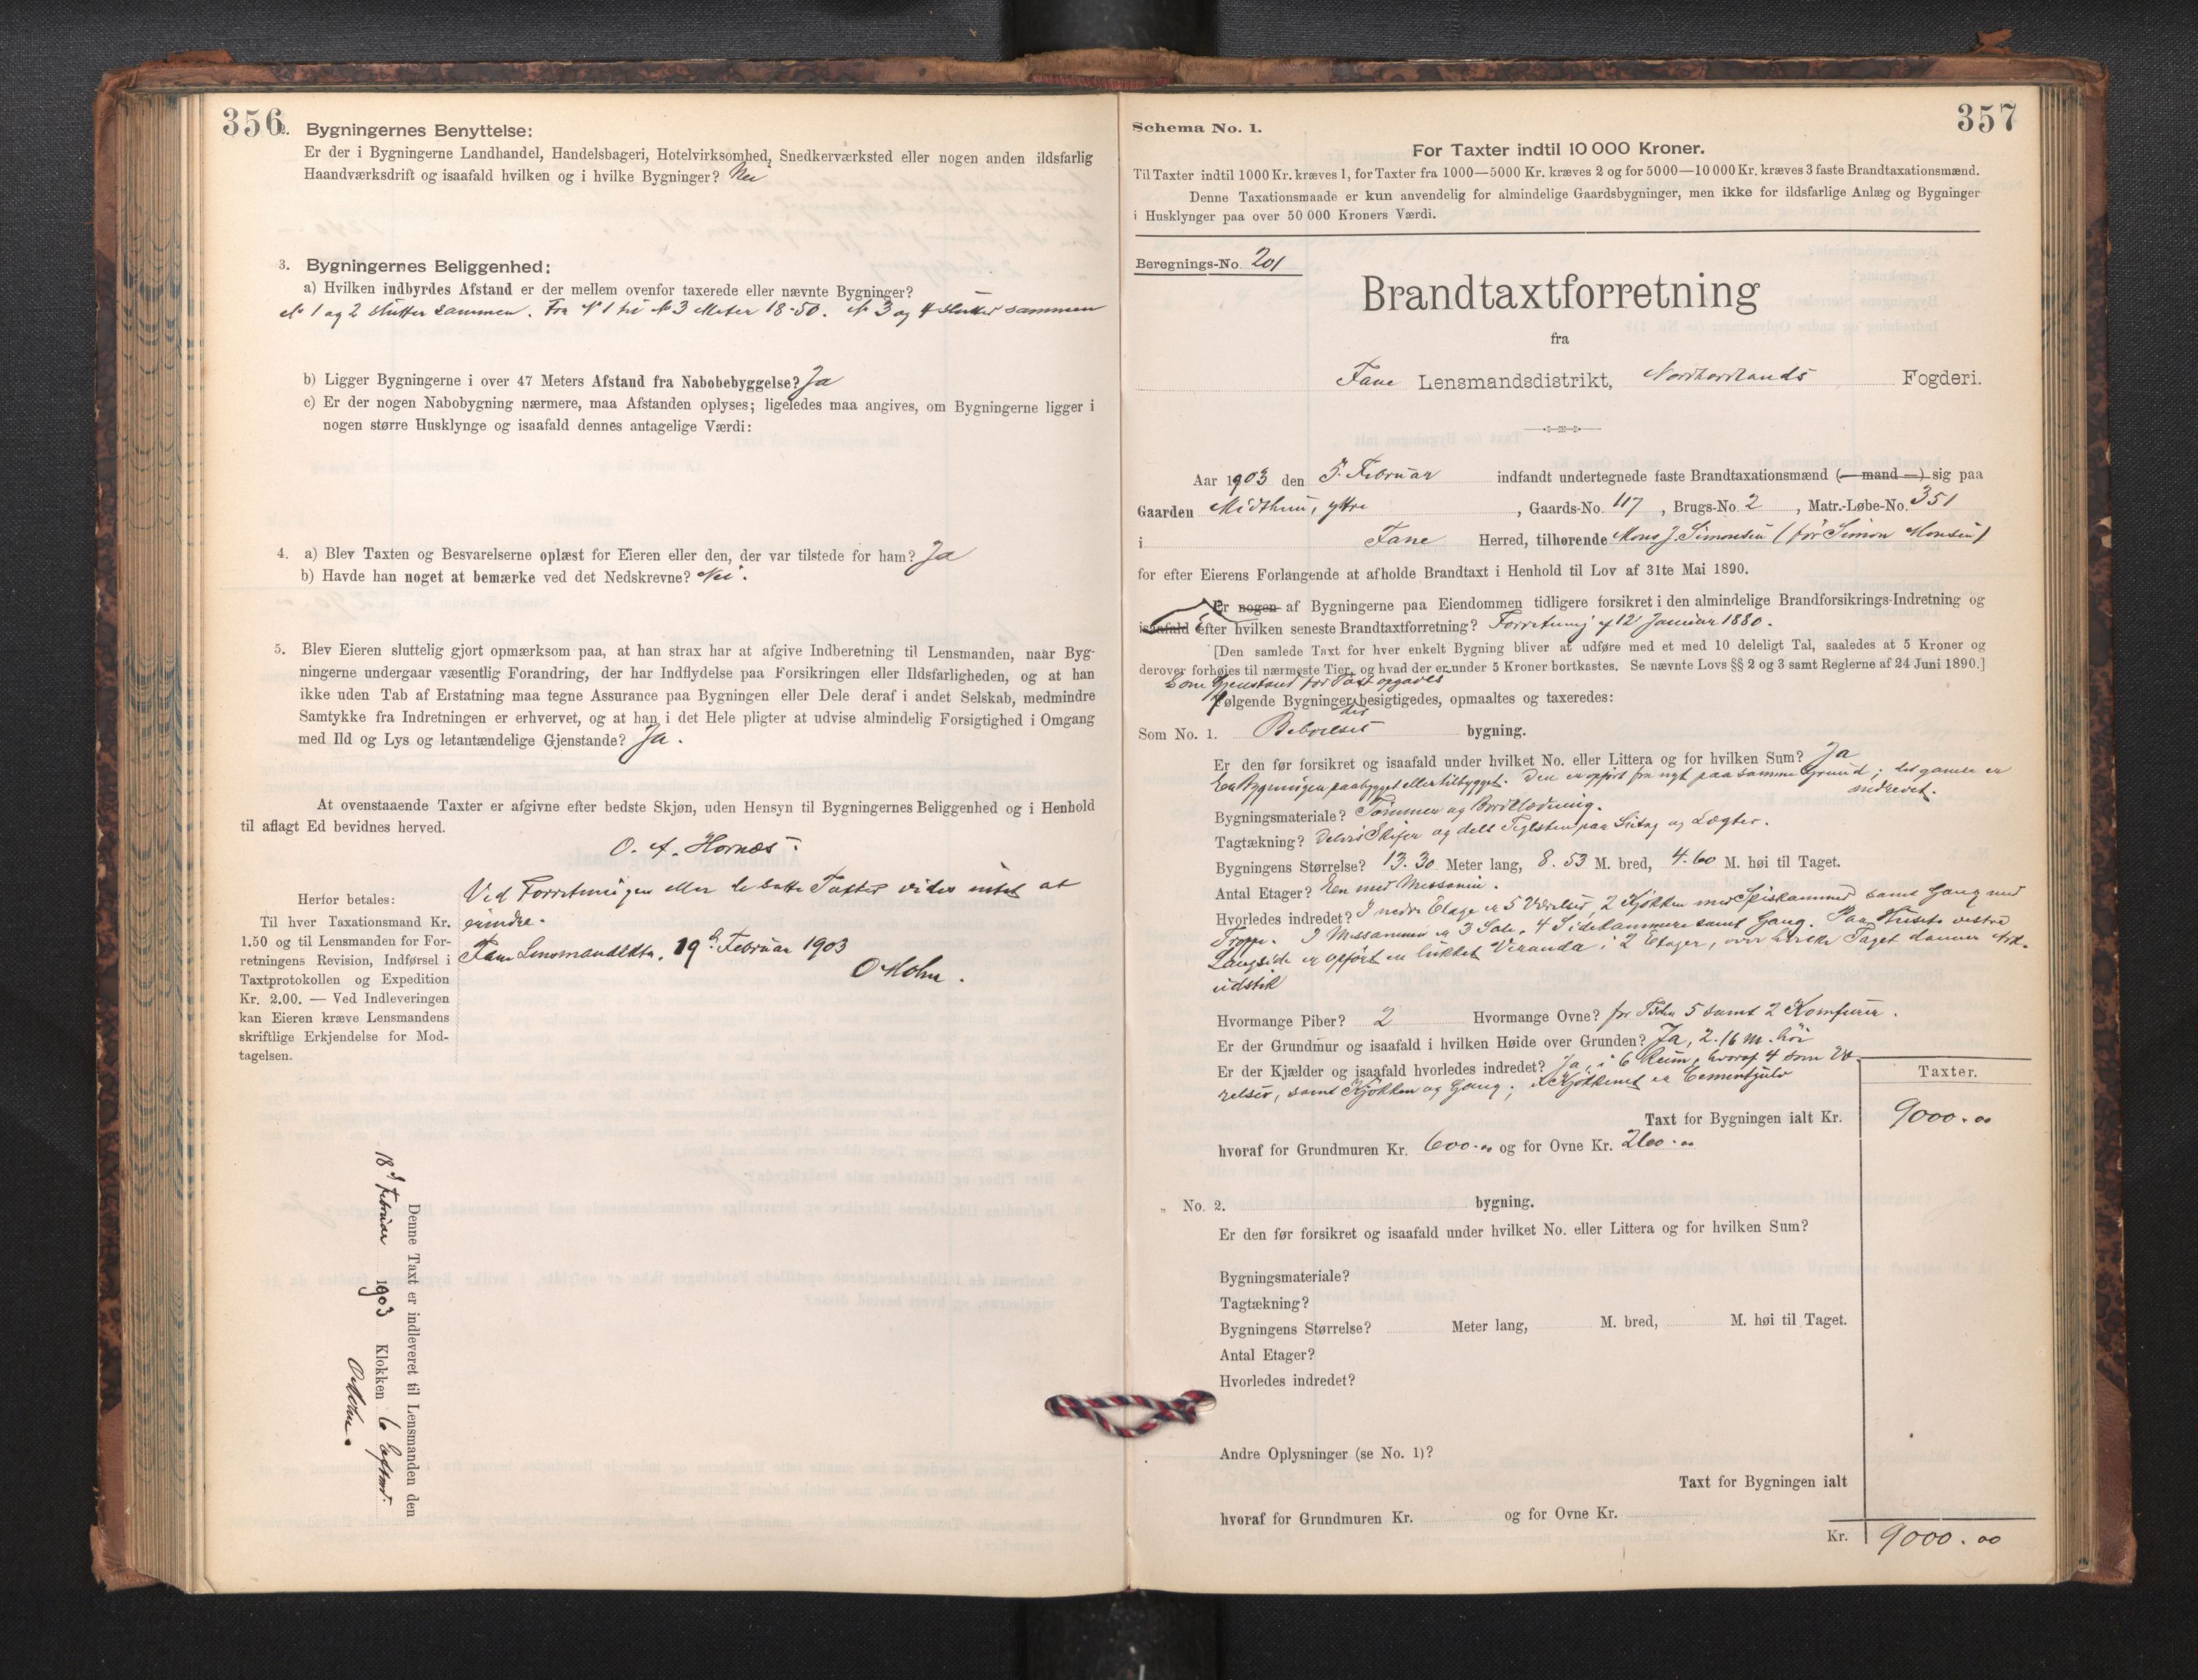 356
2. Bygningernes Benyttelse:
Er der i Bygningerne Landhandel, Handelsbageri, Hotelvirksomhed, Snedkerværksted eller nogen anden ildsfarlig
Haandværksdrift og isaafald hvilken og i hvilke Bygninger? Nei
3. Bygningernes Beliggenhed:
a) Hvilken indbyrdes Afstand er der mellem ovenfor taxerede eller nævnte Bygninger?
No 1 og 2 slutter sammen. Fra No 1 til No 3 Meter 18-50. No 3 og 4 slutter sammen
b) Ligger Bygningerne i over 47 Meters Afstand fra Nabobebyggelse? Ja
c) Er der nogen Nabobygning nærmere, maa Afstanden oplyses; ligeledes maa angives, om Bygningerne ligger i
nogen større Husklynge og isaafald dennes antagelige Værdi:
4. a) Blev Taxten og Besvarelserne oplæst for Eieren eller den, der var tilstede for ham? Ja
b) Havde han noget at bemærke ved det Nedskrevne? Nei.
5. Blev Eieren sluttelig gjort opmærksom paa, at han strax har at afgive Indberetning til Lensmanden, naar Byg-
ningerne undergaar væsentlig Forandring, der har Indflydelse paa Forsikringen eller Ildsfarligheden, og at han
ikke uden Tab af Erstatning maa tegne Assurance paa Bygningen eller Dele deraf i andet Selskab, medmindre
Samtykke fra Indretningen er erhvervet, og at han i det Hele pligter at udvise almindelig Forsigtighed i Omgang
med Ild og Lys og letantændelige Gjenstande? Ja.
At ovenstaaende Taxter er afgivne efter bedste Skjøn, uden Hensyn til Bygningernes Beliggenhed og i Henhold
til aflagt Ed bevidnes herved.
O. A. Hornæs.
Herfor betales:
Til hver Taxationsmand Kr.
1.50 og til Lensmanden for For-
retningens Revision, Indførsel i
Taxtprotokollen og Expedition
Kr. 2.00. — Ved Indleveringen
kan Eieren kræve Lensmandens
skriftlige Erkjendelse for Mod-
tagelsen.
Ved Forretningen eller de satte Taxter vides intet at
erindre.
Fane Lensmandsktr. 19 Februar 1903
O Holm.
Denne Taxt er indleveret til Lensmanden den
18 Februar 1903 Klokken 6 Eftmd.
O Holm.
357
Schema No. 1.
For Taxter indtil 10 000 Kroner.
Til Taxter indtil 1000 Kr. kræves 1, for Taxter fra 1000—5000 Kr. kræves 2 og for 5000—10 000 Kr. kræves 3 faste Brandtaxationsmænd.
Denne Taxationsmaade er kun anvendelig for almindelige Gaardsbygninger, men ikke for ildsfarlige Anlæg og Bygninger
i Husklynger paa over 50 000 Kroners Værdi.
Beregnings-No. 201
Brandtaxtforretning
fra
Fane Lensmandsdistrikt, Nordhordlands Fogderi.
Aar 1903 den 5. Februar indfandt undertegnede faste Brandtaxationsmænd (— mand —) sig paa
Gaarden Midthun, ytre, Gaards-No. 117, Brugs-No. 2, Matr.-Løbe-No. 351
i Fane Herred, tilhørende Mons J. Simonsen (før Simon Monsen)
for efter Eierens Forlangende at afholde Brandtaxt i Henhold til Lov af 31te Mai 1890.
Er nogen af Bygningerne paa Eiendommen tidligere forsikret i den almindelige Brandforsikrings-Indretning og
isaafald efter hvilken seneste Brandtaxtforretning? Forretning af 12 Januar 1880.
[Den samlede Taxt for hver enkelt Bygning bliver at udføre med et med 10 deleligt Tal, saaledes at 5 Kroner og
derover forhøies til nærmeste Tier, og hvad der er under 5 Kroner bortkastes. Se nævnte Lovs §§ 2 og 3 samt Reglerne af 24 Juni 1890.]
Som Gjenstand for Taxt opgaves
Følgende Bygninger der besigtigedes, opmaaltes og taxeredes:
Som No. 1. Beboelses bygning.
Er den før forsikret og isaafald under hvilket No. eller Littera og for hvilken Sum? Ja
Er Bygningen paabygget eller tilbygget. Den er opført fra nyt paa samme Grund; det gamle er
nedrevet.
Bygningsmateriale? Tømmer og Bordklædning.
Tagtækning? Delvis Skifer og dels Teglsten paa Sutag og Lægter.
Bygningens Størrelse? 13.30 Meter lang, 8.53 M. bred, 4.60 M. høi til Taget.
Antal Etager? Een med Messanin.
Hvorledes indredet? I nedre Etage er 5 Værelser, 2 Kjøkken med Spiskammer samt Gang med
Trappe. I Messaninen er 3 Sale, 4 Sidekammere samt Gang. Paa Husets vestre
Langside er opført en lukket Veranda i 2 Etager, over hvilke Taget danner Ark-
udstik
Hvormange Piber? 2 Hvormange Ovne? for Tiden 5 samt 2 Komfurer.
Er der Grundmur og isaafald i hvilken Høide over Grunden? Ja, 2.16 M. høi
Er der Kjælder og isaafald hvorledes indredet? Ja, i 6 Rum, hvoraf 4 som Væ-
relser, samt Kjøkken og Gang; i Kjøkkenet er Cementgulv
Taxter.
Taxt for Bygningen ialt Kr. 9000.00
hvoraf for Grundmuren Kr. 600.00 og for Ovne Kr. 260.00
„ No. 2. bygning.
Er den før forsikret og isaafald under hvilket No. eller Littera og for hvilken Sum?
Bygningsmateriale?
Tagtækning?
Bygningens Størrelse? Meter lang, M. bred, M. høi til Taget.
Antal Etager?
Hvorledes indredet?
Andre Oplysninger (se No. 1)?
Taxt for Bygningen ialt
hvoraf for Grundmuren Kr. og for Ovne Kr.
Kr. 9000.00